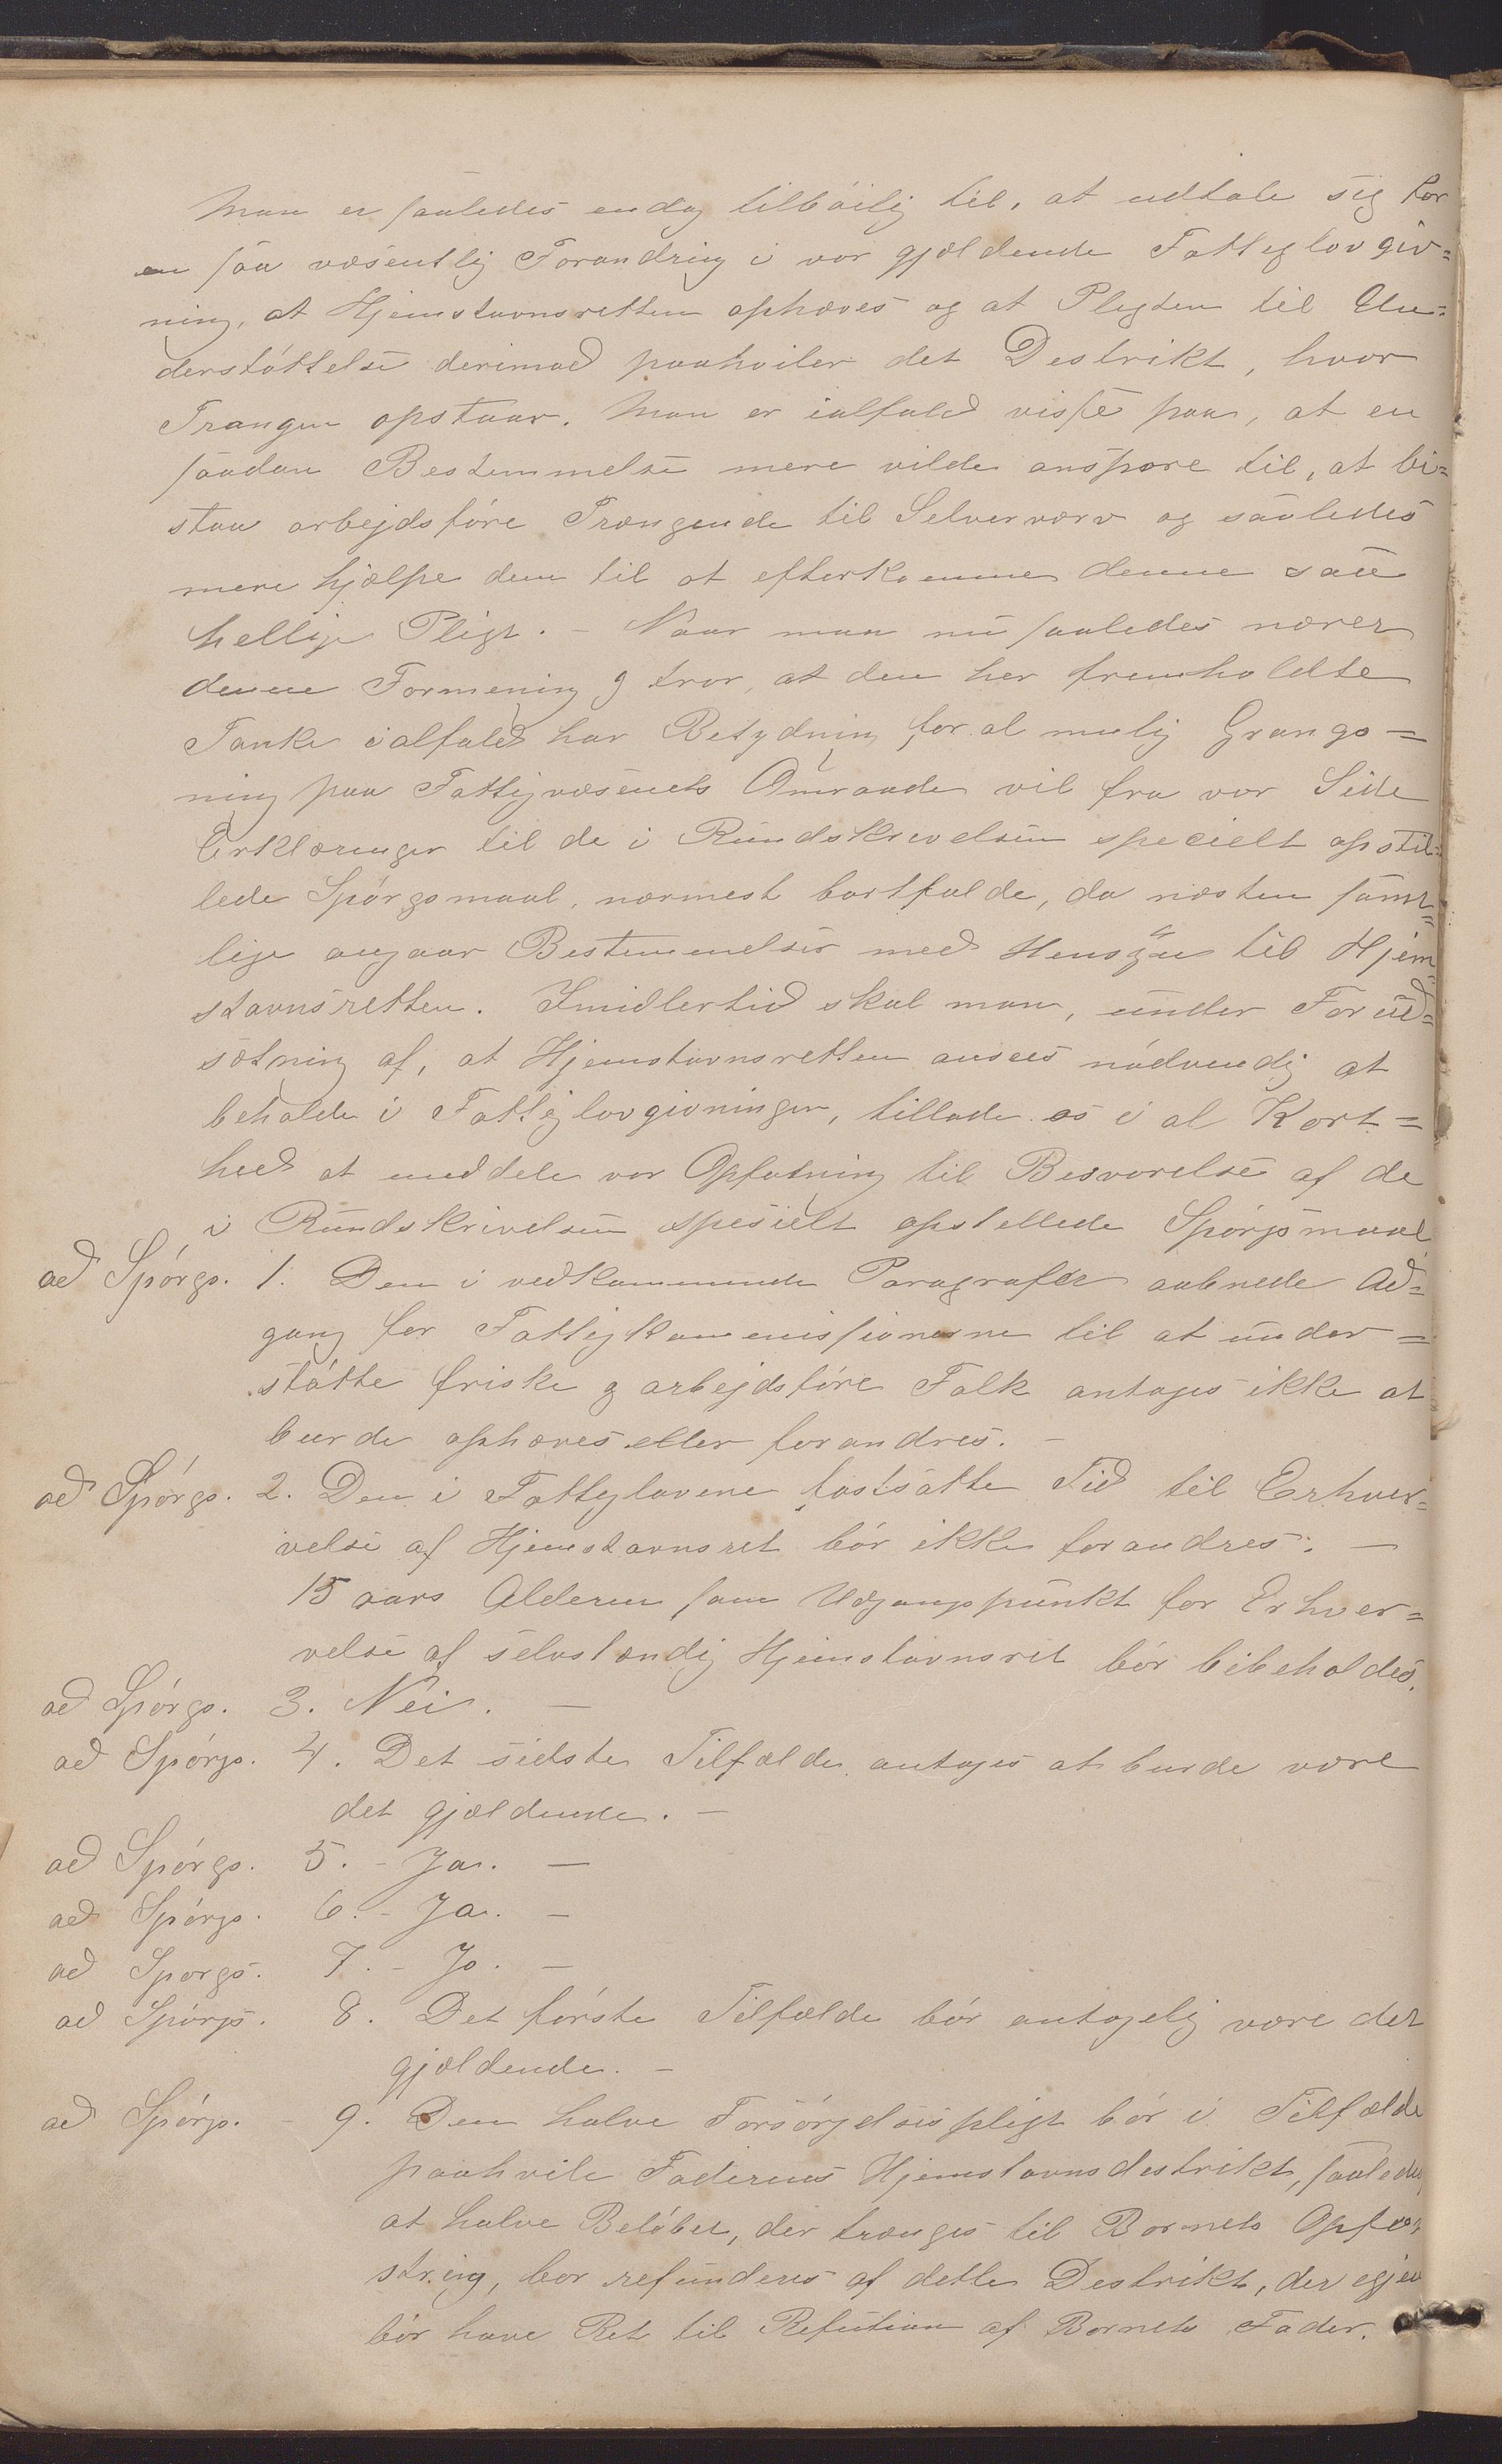 Man er saaledes endog tilbøilig til, at udtale sig for
en saa væsentlig Forandring i vor gjældende Fattiglovgiv=
ning, at Hjemstavnsretten ophæves og at Pligten til Un=
derstøttelse derimod paahviler det Destrikt, hvor
Trangen opstaar. Man er ialfald visse paa, at en
saadan Bestemmelse mere vilde anspore til, at bi=
staa arbejdsføre Trængende til Selverværv og saaledes
mere hjælpe dem til at efterkomme denne saa
hellige Pligt. – Naar man nu saaledes nærer
denne Formening og tror, at den her fremholdte
Tanke ialfald har Betydning for al mulig
ning paa Fattigvæsenets Omraade vil fra vor Side
Erklæringer til de i Rundskrivelsen specielt opstil=
lede Spørgsmaal, nærmest bortfalde, da næsten samt=
lige angaar Bestemmelser med Hensyn til Hjem=
stavnsretten. Imidlertid skal man, under Forud=
sætning af, at Hjemstavnsretten ansees nødvendig at
beholde i Fattiglovgivningen, tillade os i al Kort=
hed at meddele vor Opfatning til Besvarelse af de
i Rundskrivelsen spesielt opstellede Spørgsmaal
ad Spørgs. 1. Den i vedkommende Paragrafer aabnede Ad=
gang for Fattigkommissionerne til at under=
støtte friske og arbejdsføre Folk antages ikke at
burde ophæves eller forandres. –
ad Spørgs. 2. Den i Fattiglovene fastsatte Tid til Erhver=
velse af Hjemstavnsret bør ikke forandres. –
15 aars Alderen som Udgangspunkt for Erhver=
velse af selvstændig Hjemstavnsret bør bibeholdes.
ad Spørgs. 3. Nei. –
ad Spørgs. 4. Det sidste Tilfælde antages at burde være
det gjældende. –
ad Spørgs. 5. – Ja. –
ad Spørgs. 6. – Ja. –
ad Spørgs. 7. – Jo. –
ad Spørgs. 8. Det første Tilfælde bør antagelig være det
gjældende. –
ad Spørgs. – 9. Den halve Forsørgelsespligt bør i Tilfælde
paahvile Faderens Hjemstavnsdestrikt, saaledes
at halve Beløbet, der trænges til Barnets Opfo=
string, bør refunderes af dette Destrikt, der igjen
bør have Ret til Refution af Barnets Fader.